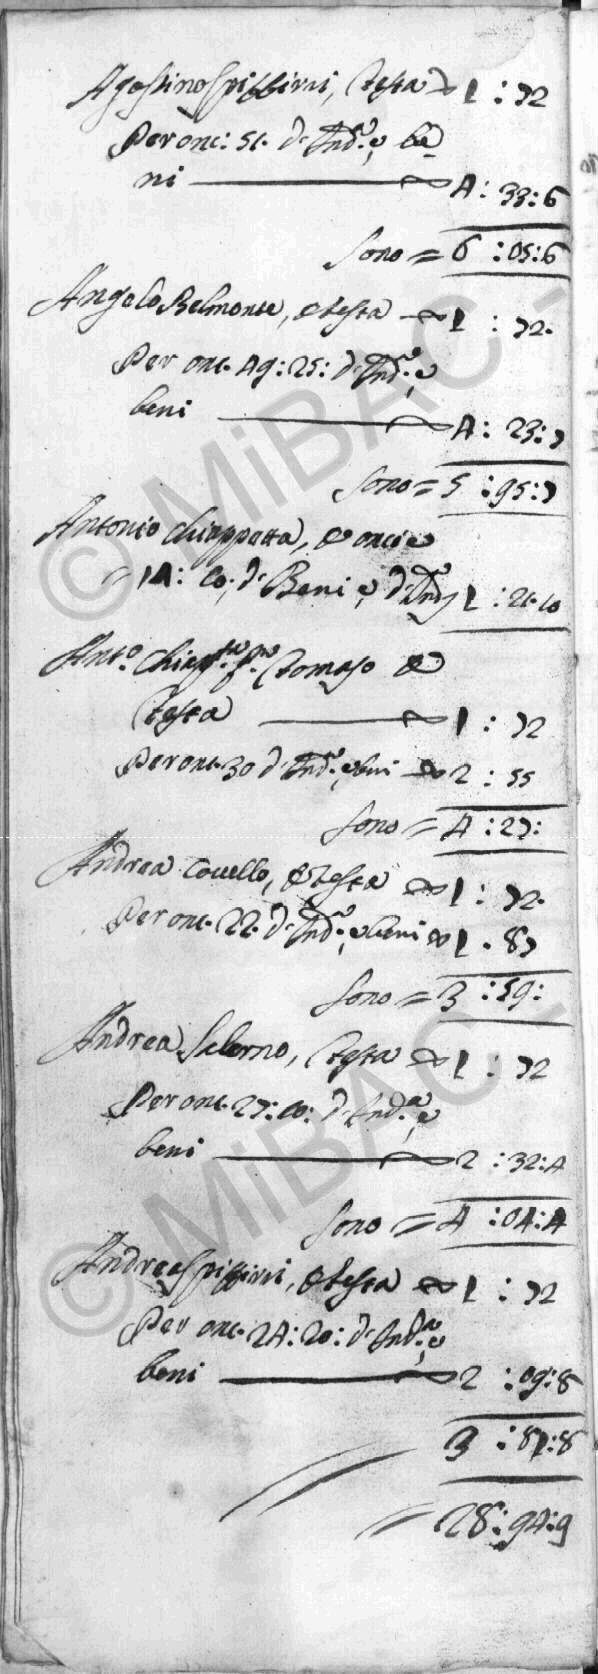 Agostino Spizzirri, testa 1 : 72
Per onc: 51. d' Ind.a e be
ni 4: 33:6
Sono = 6 :05:6
Angelo Belmonte, e testa 1 : 72.
Per onc. 49:25: d' Ind.a e
beni 4: 23:7
Sono = 5 :95:7
Antonio Chiappetta, e oncie
= 14: 10: d' Beni e d' Ind.a 1 : 21.10
Ant.o Chiap.ta f.o Tomaso e
testa 1 : 72
Per onc. 30 d' Ind.a e beni 2 : 55
Sono = 4 : 27:
Andrea Covello, e testa 1 : 72.
Per onc. 22. d' Ind.a e beni 1 . 87
Sono = 3 :59:
Andrea Salerno, testa 1 : 72
Per onc. 27:10: d' Ind.a e
beni 2 :32:4
Sono = 4 :04:4
Andrea Spizzirri, e testa 1 : 72
Per onc. 24:20: d' Ind.a e
beni 2 :09:8
3 :81:8
= 28:94:9
© MiBAC -
© MiBAC -